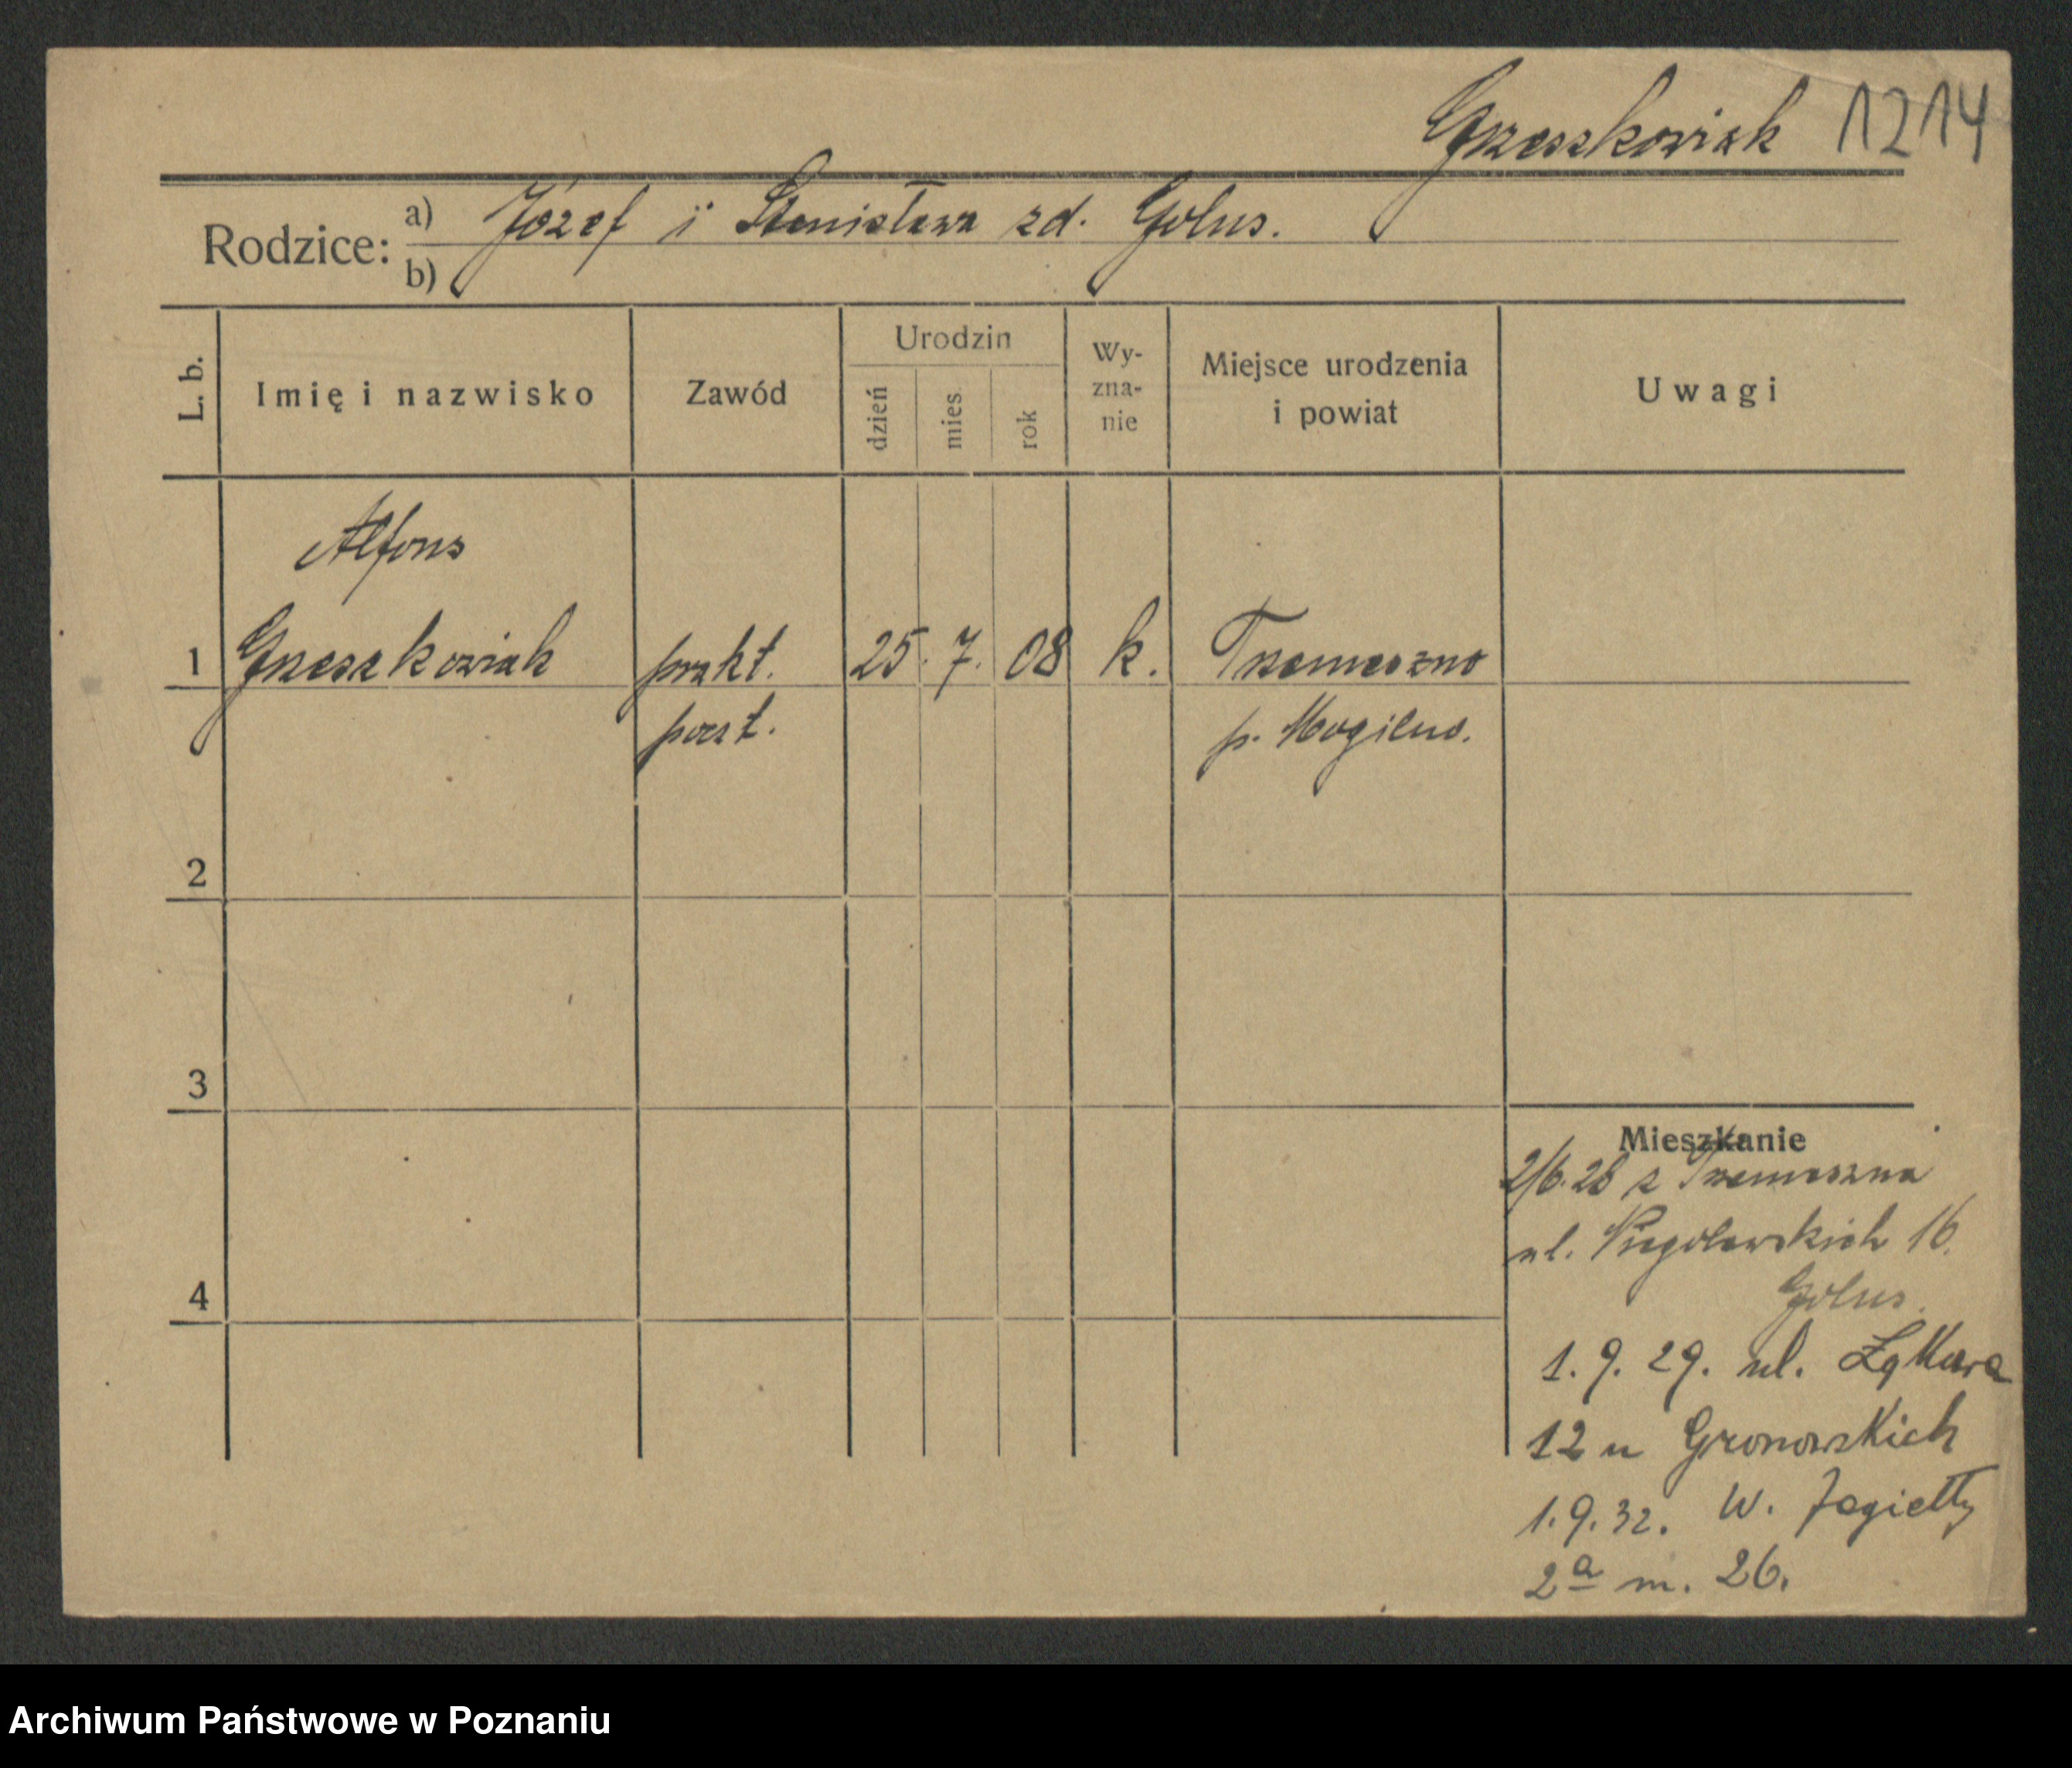 Grzeszkowiak 1214
Rodzice: a) Józef i Stanisława zd. Golus.
b)
L. b. Imię i nazwisko Zawód Urodzin dzień mies. rok Wy-zna-nie Miejsce urodzenia i powiat Uwagi
Alfons
1 Grzeszkowiak prakt. 25. 7. 08 k. Trzemeszno
poczt. p. Mogilno.
2
3
4
Mieszkanie
2/6.28 z Trzemeszna
ul. Niegolewskich 16.
Golus.
1. 9. 29. ul. Łąkowa
12 u Gronowskich
1. 9. 32. W. Jagiełły
2a m. 26.
Archiwum Państwowe w Poznaniu